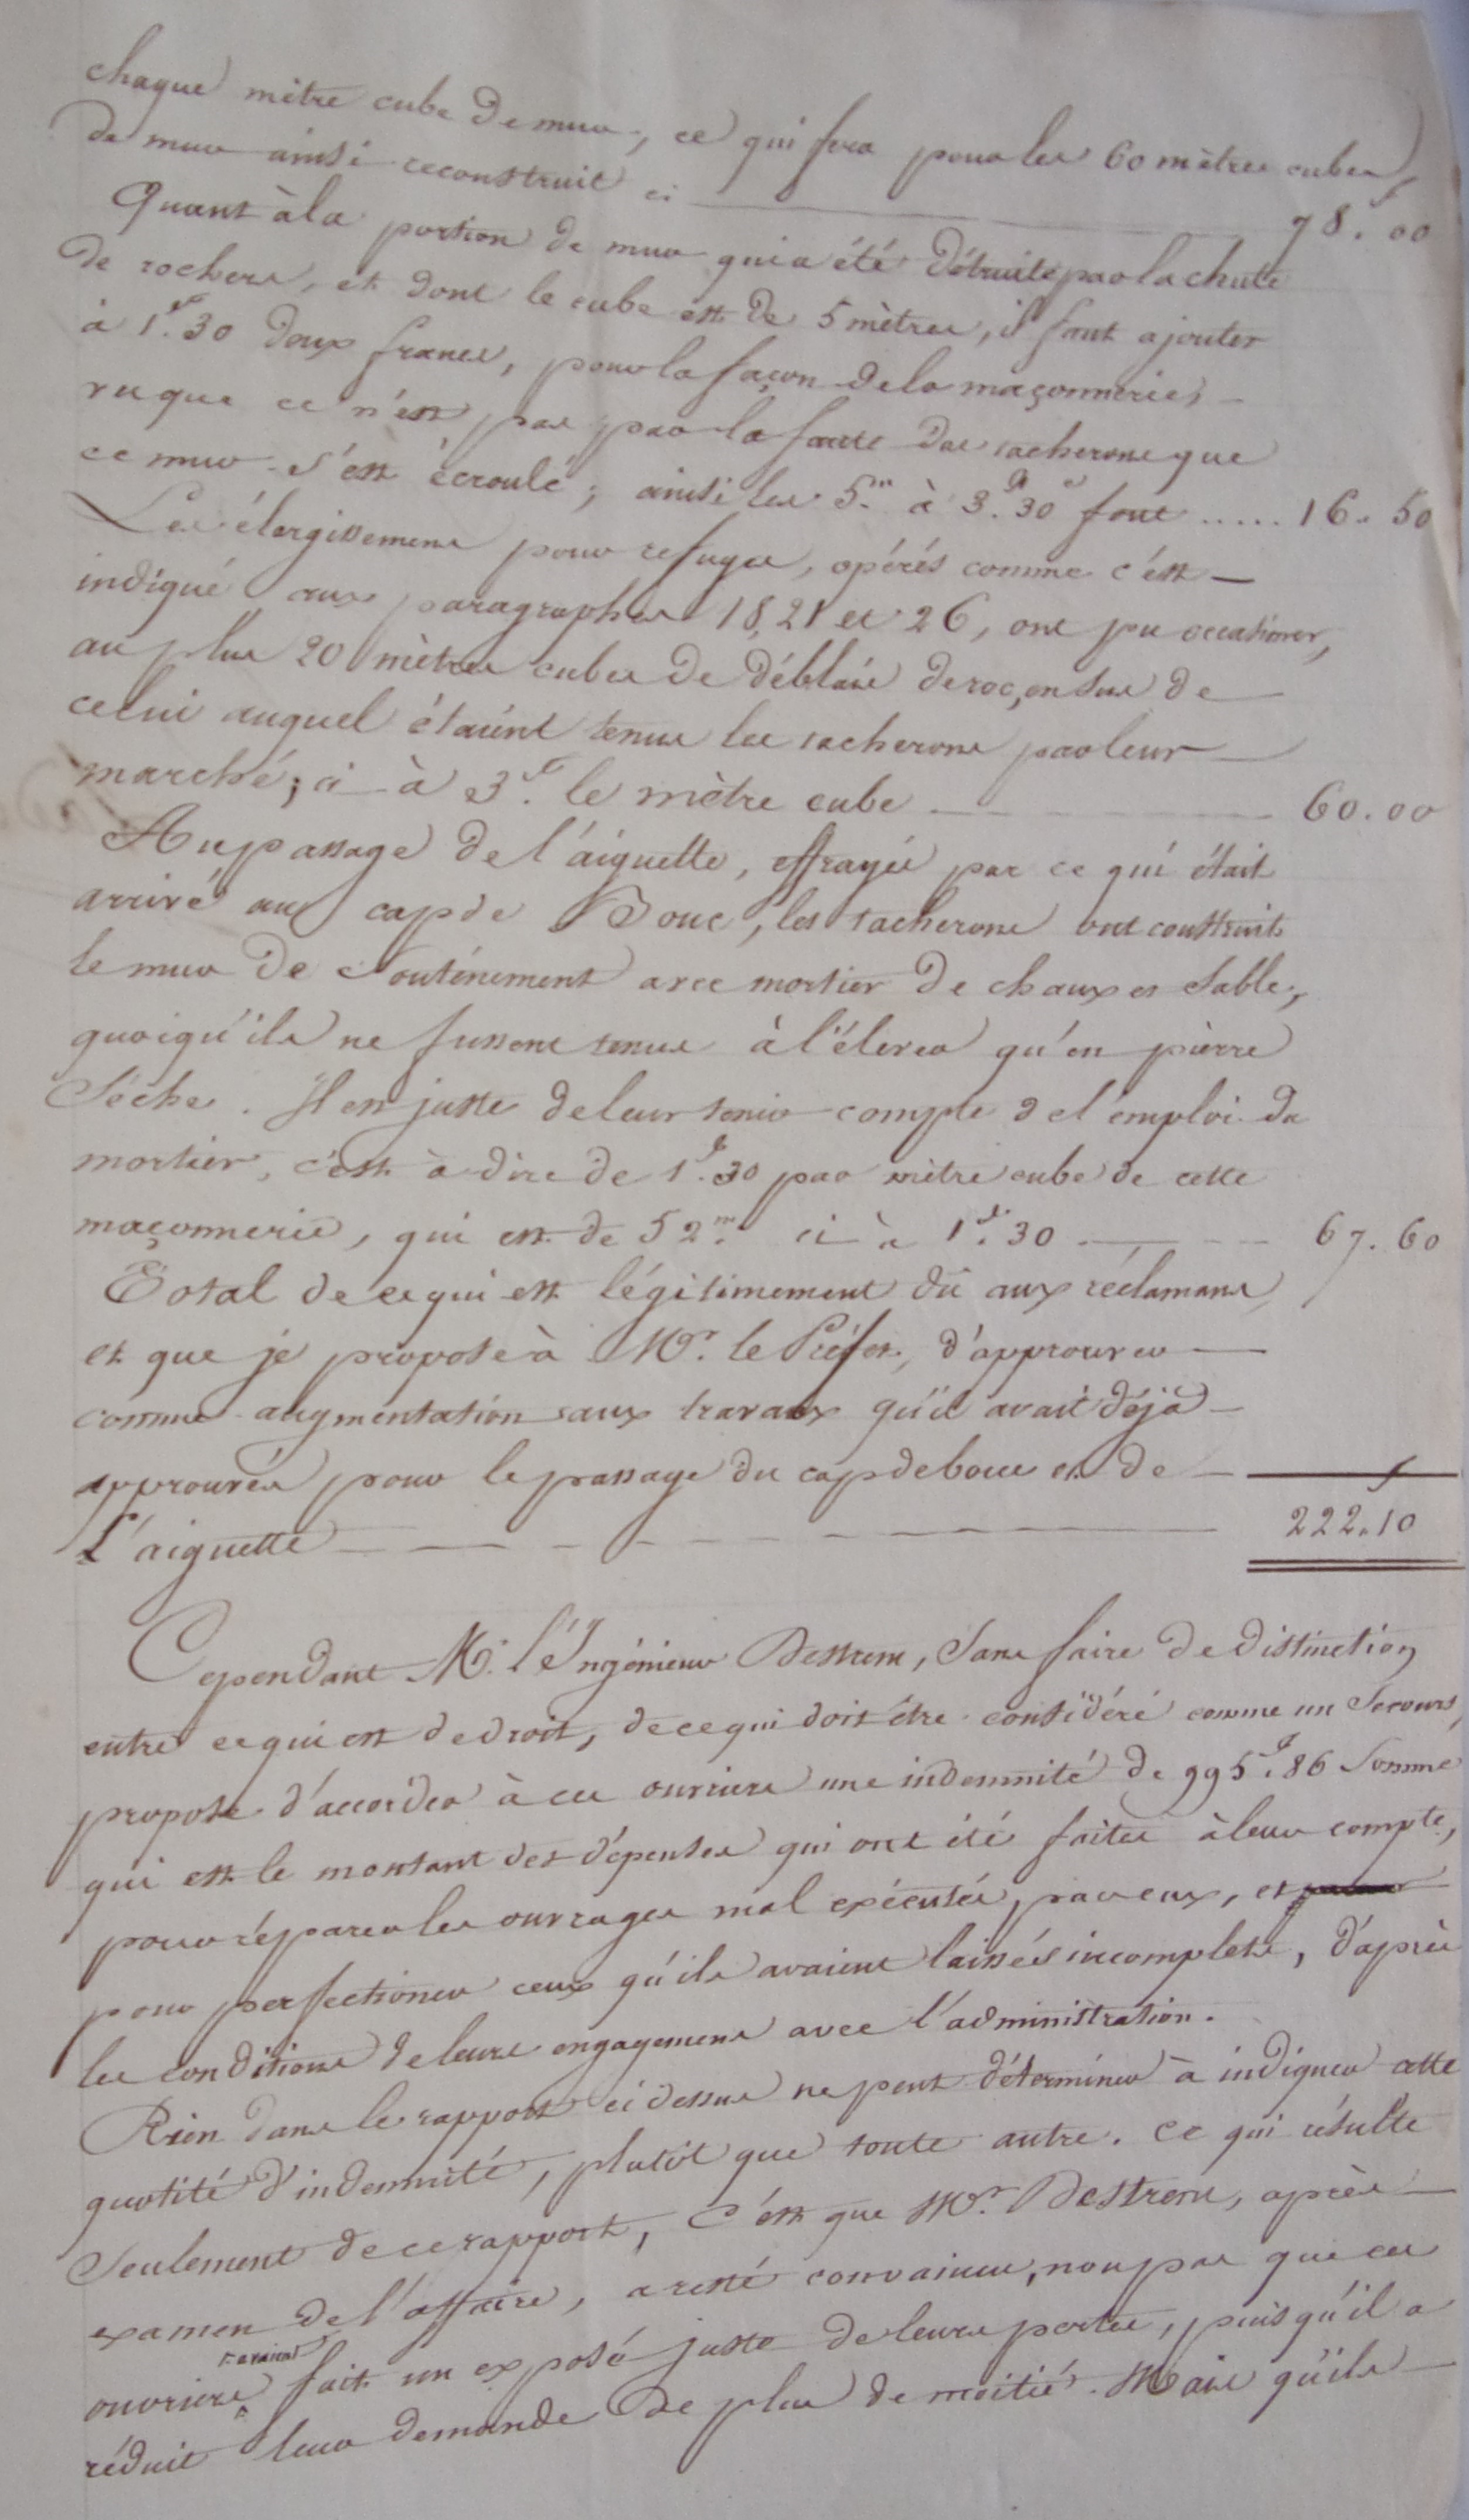 chaque mètre cube de mur, ce qui fera pour les 60 mètres cubes
de mur ainsi reconstruit ci 78.f 00
Quant à la portion de mur qui a été détruite par la chute
de rochers, et dont le cube est de 5 mètres, il faut ajouter
à 1.f 30 deux francs, pour la façon de la maçonnerie,
vu que ce n'est pas par la faute des tacherons que
ce mur s'est écroulé; ainsi les 5.m à 3.f 30c font ..... 16. 50
Les élargissemens pour refuges, opérés comme c'est
indiqué aux paragraphes 18, 21 et 26, ont pu occationer,
au plus 20 mètres cubes de déblais de roc, en sus de
celui auquel étaient tenus les tacherons par leur
marché; ci à 3.f le mètre cube 60. 00
Au passage de l'aiguette, effrayés par ce qui était
arrivé au cap de Bouc, les tacherons ont construit
le mur de soutènement avec mortier de chaux et sable,
quoiqu'ils ne fussent tenus à l'élever qu'en pierre
sèche. Il est juste de leur tenir compte de l'emploi du
mortier, c'est à dire de 1.f 30 par mètre cube de cette
maçonnerie, qui est de 52.m ci à 1.f 30 67. 60
Total de ce qui est légitimement dû aux réclamans
et que je propose à Mr. le Préfet, d'approuver
comme augmentation aux travaux qu'il avait déjà
approuvés pour le passage du cap de bouc et de
L'aiguette 222.f 10
Cependant M. l'Ingénieur Destrem, sans faire de distinction
entre ce qui est de droit, de ce qui doit être considéré comme un secours,
propose d'accorder à ces ouvriers une indemnité de 995.f 86 somme
qui est le montant des dépenses qui ont été faites à leur compte,
pour réparer les ouvrages mal exécutés, par eux, et
pour perfectioner ceux qu'ils avaient laissés incomplets, d'après
les conditions de leurs engagemens avec l'administration.
Rien dans le rapport ci dessus ne peut déterminer à indiquer cette
quotité d'indemnité, plutôt que toute autre. Ce qui résulte
seulement de ce rapport, c'est que Mr. Destrem, après
examen de l'affaire, a resté convaincu, non pas que ces
ouvriers avaient fait un exposé juste de leurs pertes, puisqu'il a
réduit leur demande de plus de moitié. Mais qu'ils